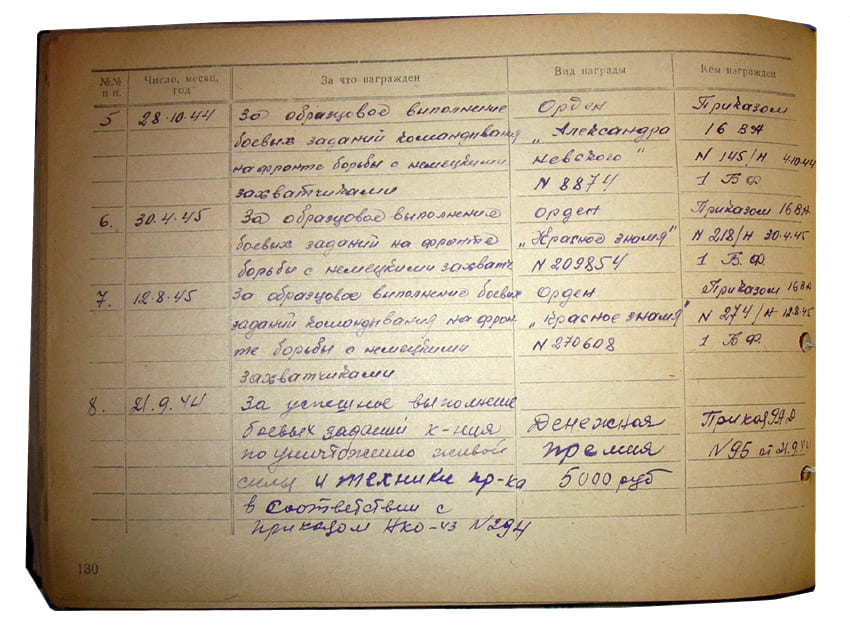 №№ п п.	Число, месяц, год	За что награжден	Вид награды	Кем награжден
5	28.10.44	За образцовое выполнение	Орден	Приказом
боевых заданий командывания	„Александра	16 ВА
на фронте борьбы с немецкими	невского“	N 145/Н 4.10.44
захватчиками	N 8874	1 БФ
6.	30.4.45	За образцовое выполнение	орден	Приказом 16 ВА
боевых заданий на фронте	„Красное знамя“	N 218/Н 30.4.45
борьбы с немецкими захватч	N 209854	1 Б.Ф.
7.	12.8.45	За образцовое выполнение боевых	Орден	Приказом 16 ВА
заданий командывания на фрон	„Красное знамя“	N 274/Н 12.8.45
те борьбы с немецкими	N 270608	1 БФ.
захватчиками
8.	21.9.44	За успешное выполнение
боевых заданий к-ния	Денежная	Приказ
по уничтожению живой	премия	N95 от 21.9.44
силы и техники пр-ка	5000 руб
в соответствии с
приказом НКО N294
130